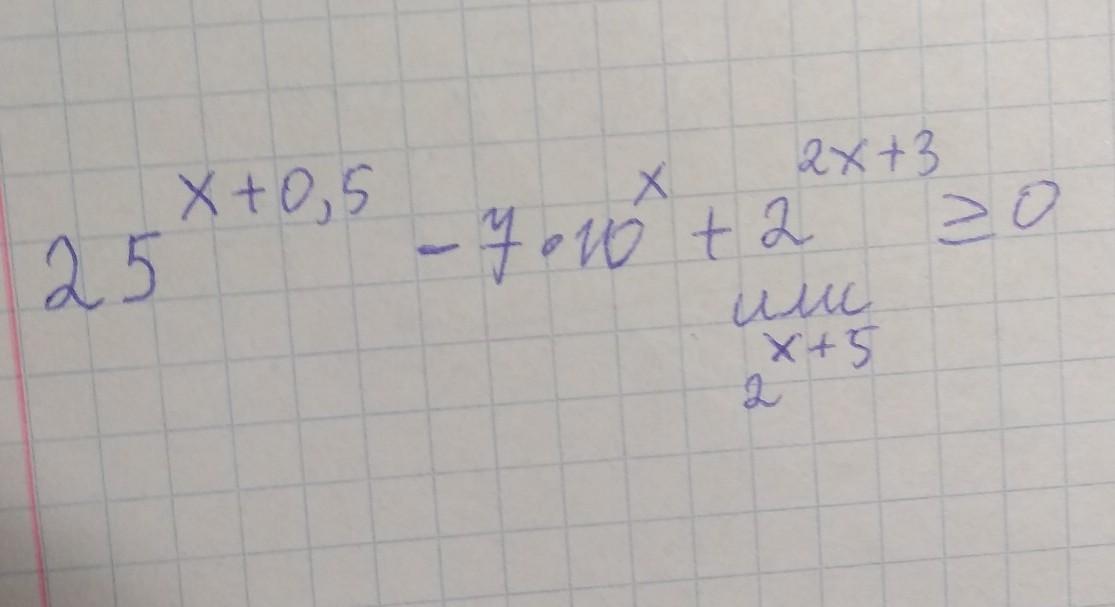 25^{x+0,5} - 7·10^x + 2^{2x+3} ≥ 0
или
2^{x+5}